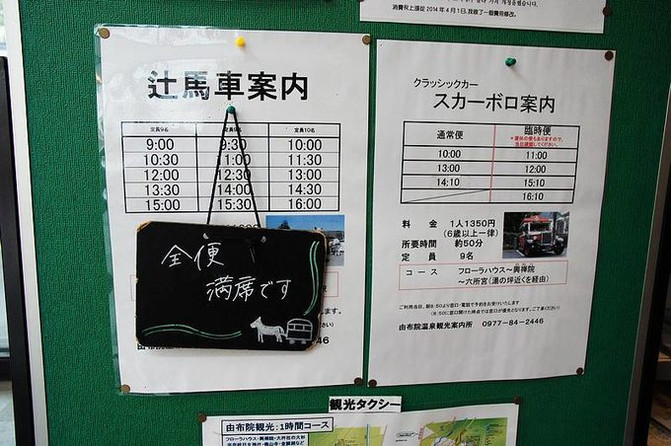 消費税上漲從 2014年4月1日,我做了一個費用修改。
辻馬車案内
定員9名 定員9名 定員10名
9:00 9:30 10:00
10:30 11:00 11:30
12:00 12:30 13:00
13:30 14:00 14:30
15:00 15:30 16:00
全便
満席です
クラッシックカー
スカーボロ案内
通常便 臨時便
10:00 11:00
13:00 12:00
14:10 15:10
16:10
料 金 1人1350円
(6歳以上一律)
所要時間 約50分
定 員 9名
コース フローラハウス~興禅院
~六所宮(湯の坪近くを経由)
由布院温泉観光案内所 0977-84-2446
観光タクシー
由布院観光:1時間コース